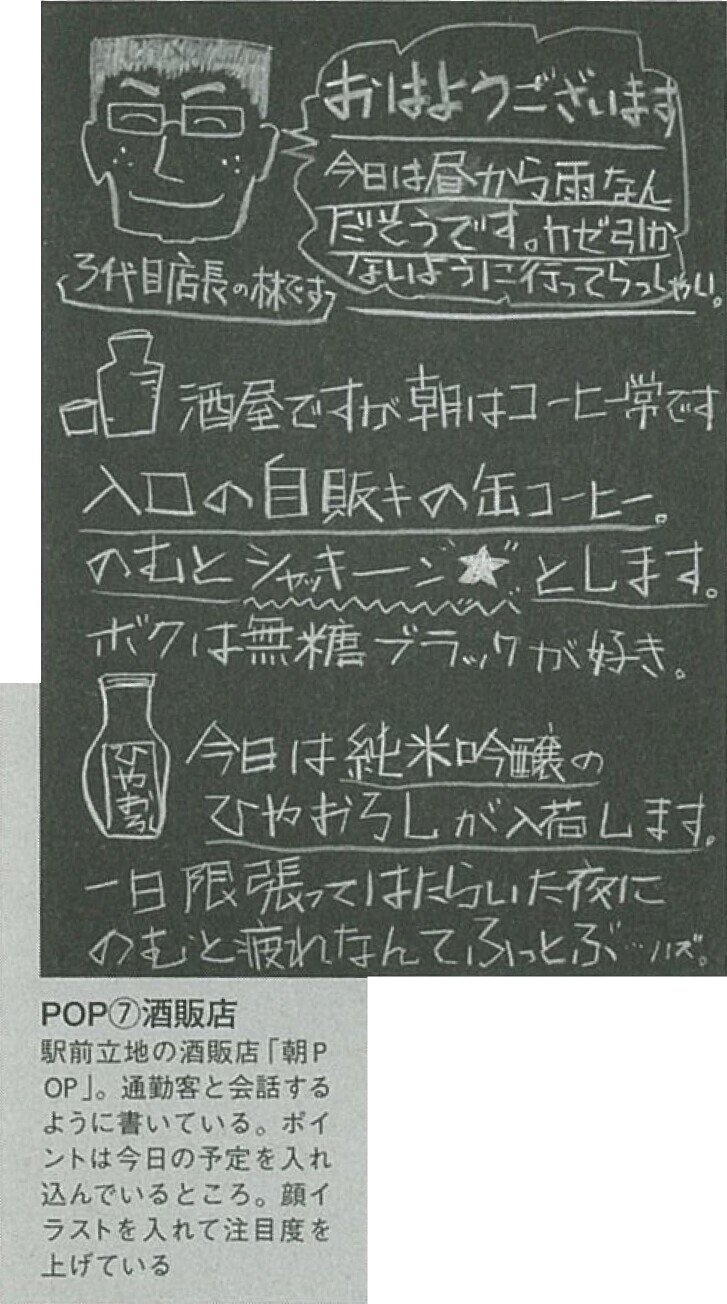 おはようございます
今日は昼から雨なん
だそうです。カゼ引か
ないように行ってらっしゃい。
3代目店長の林です
酒屋ですが朝はコーヒー常です
入口の自販キの缶コーヒー。
のむとシャッキーン★とします。
ボクは無糖ブラックが好き。
ひやおろし
今日は純米吟醸の
ひやおろしが入荷します。
一日限張ってはたらいた夜に
のむと疲れなんてふっとぶ…ハズ。
POP⑦酒販店
駅前立地の酒販店「朝P
OP」。通勤客と会話する
ように書いている。ポイ
ントは今日の予定を入れ
込んでいるところ。顔イ
ラストを入れて注目度を
上げている